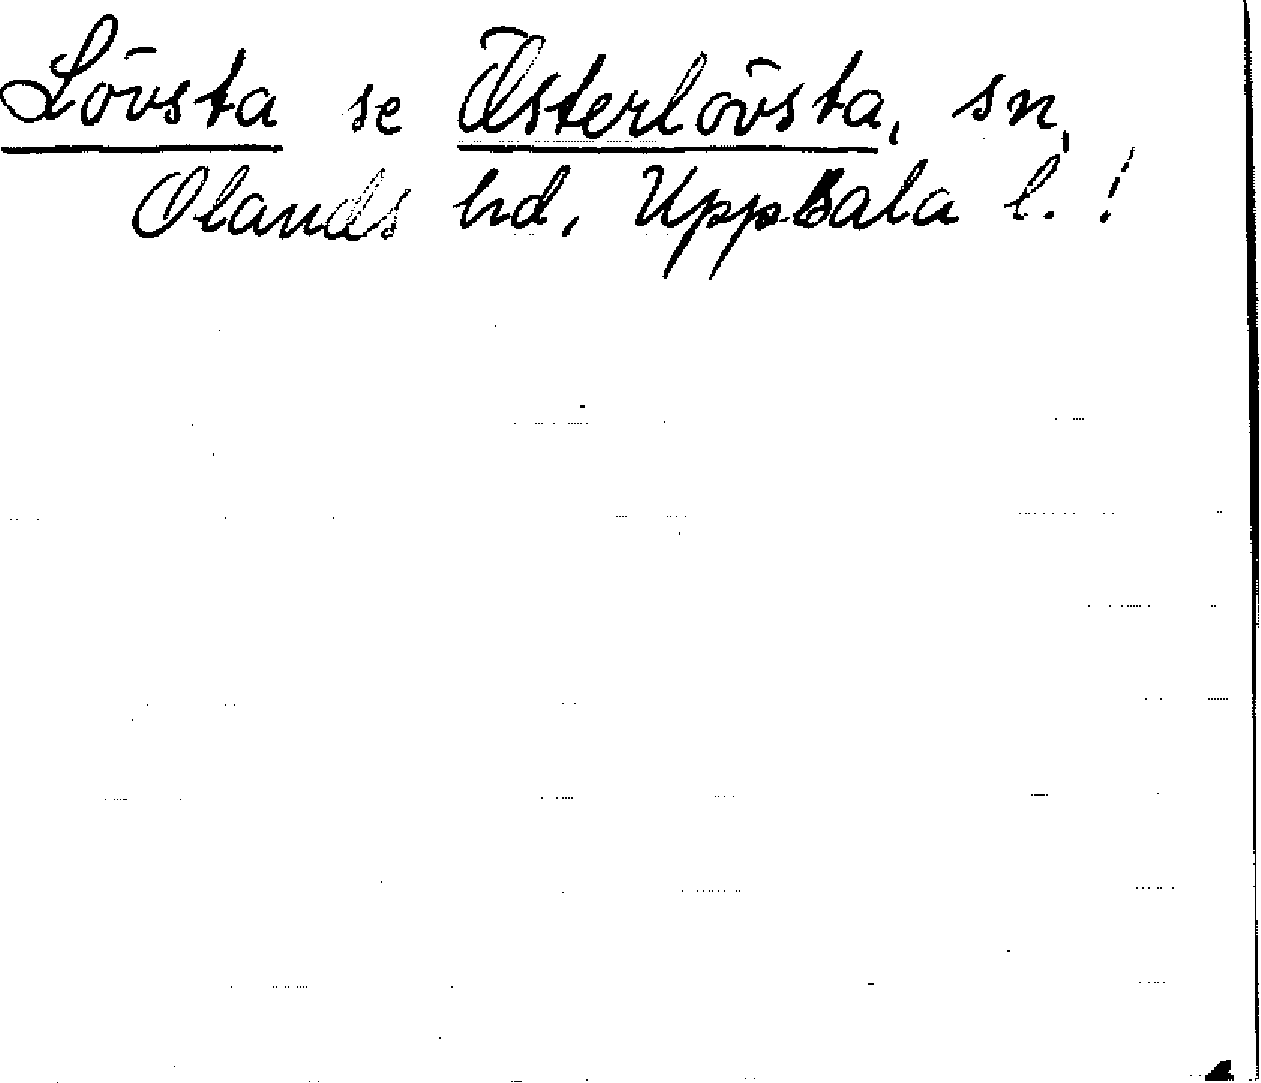 Lövsta se Österlövsta, sn,
Olands hd, Uppsala l. !